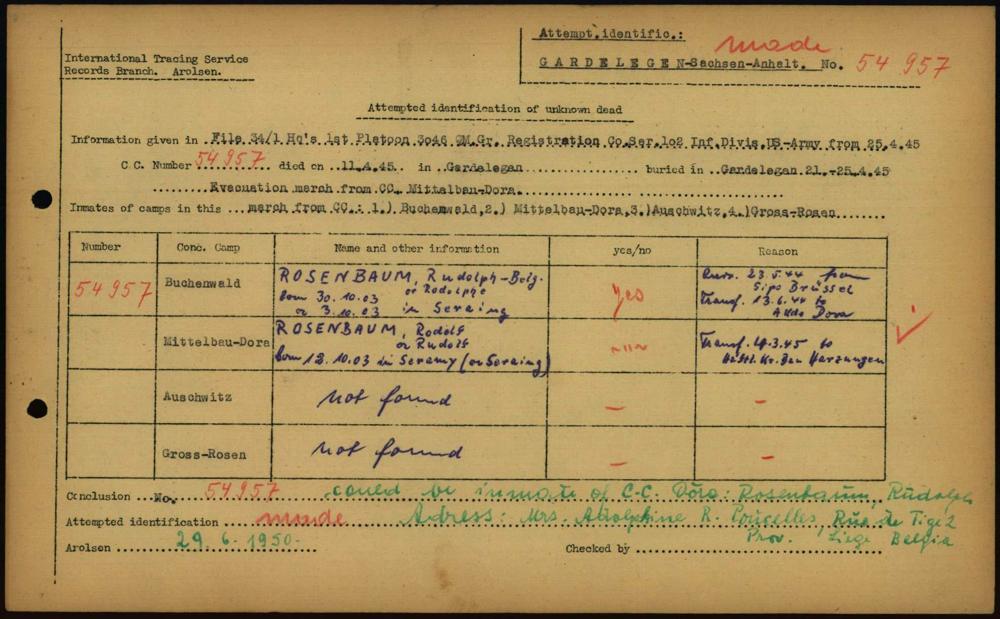 Attempt. identific.: made
International Tracing Service
Records Branch. Arolsen.
GARDELEGEN-Sachsen-Anhalt. No. 54 957
Attempted identification of unknown dead
Information given in File 34/1 Hq's 1st Platoon 3o46 QM.Gr. Registration Co.Ser.1o2 Inf.Divis.US-Army from 25.4.45
C.C. Number 54957 died on 11.4.45. in Gardelegan buried in Gardelegan 21.-25.4.45
Evacuation march from CC. Mittelbau-Dora.
Inmates of camps in this march from CC.: 1.) Buchenwald, 2.) Mittelbau-Dora, 3.) Auschwitz, 4.) Gross-Rosen
Number Conc. Camp Name and other information yes/no Reason
54957 Buchenwald ROSENBAUM, Rudolph-Belg. yes 23.5.44 from
or Rodolphe Sipo Brüssel
born 30.10.03 Transf. 13.6.44 to
or 3.10.03 in Seraing Dora
Mittelbau-Dora ROSENBAUM, Rodolf -"- Transf. 4.3.45 to
or Rudolf
born 12.10.03 in Seramy (or Seraing) Harzungen
Auschwitz not found — —
Gross-Rosen not found — —
Conclusion No. 54957 could be inmate of C.C. Dora: Rosenbaum, Rudolph
Attempted identification made Adress: Mrs. Adolphine R. Poucelles, Rua de Tige 2
Prov. Liege Belgia
Arolsen 29.6.1950. Checked by